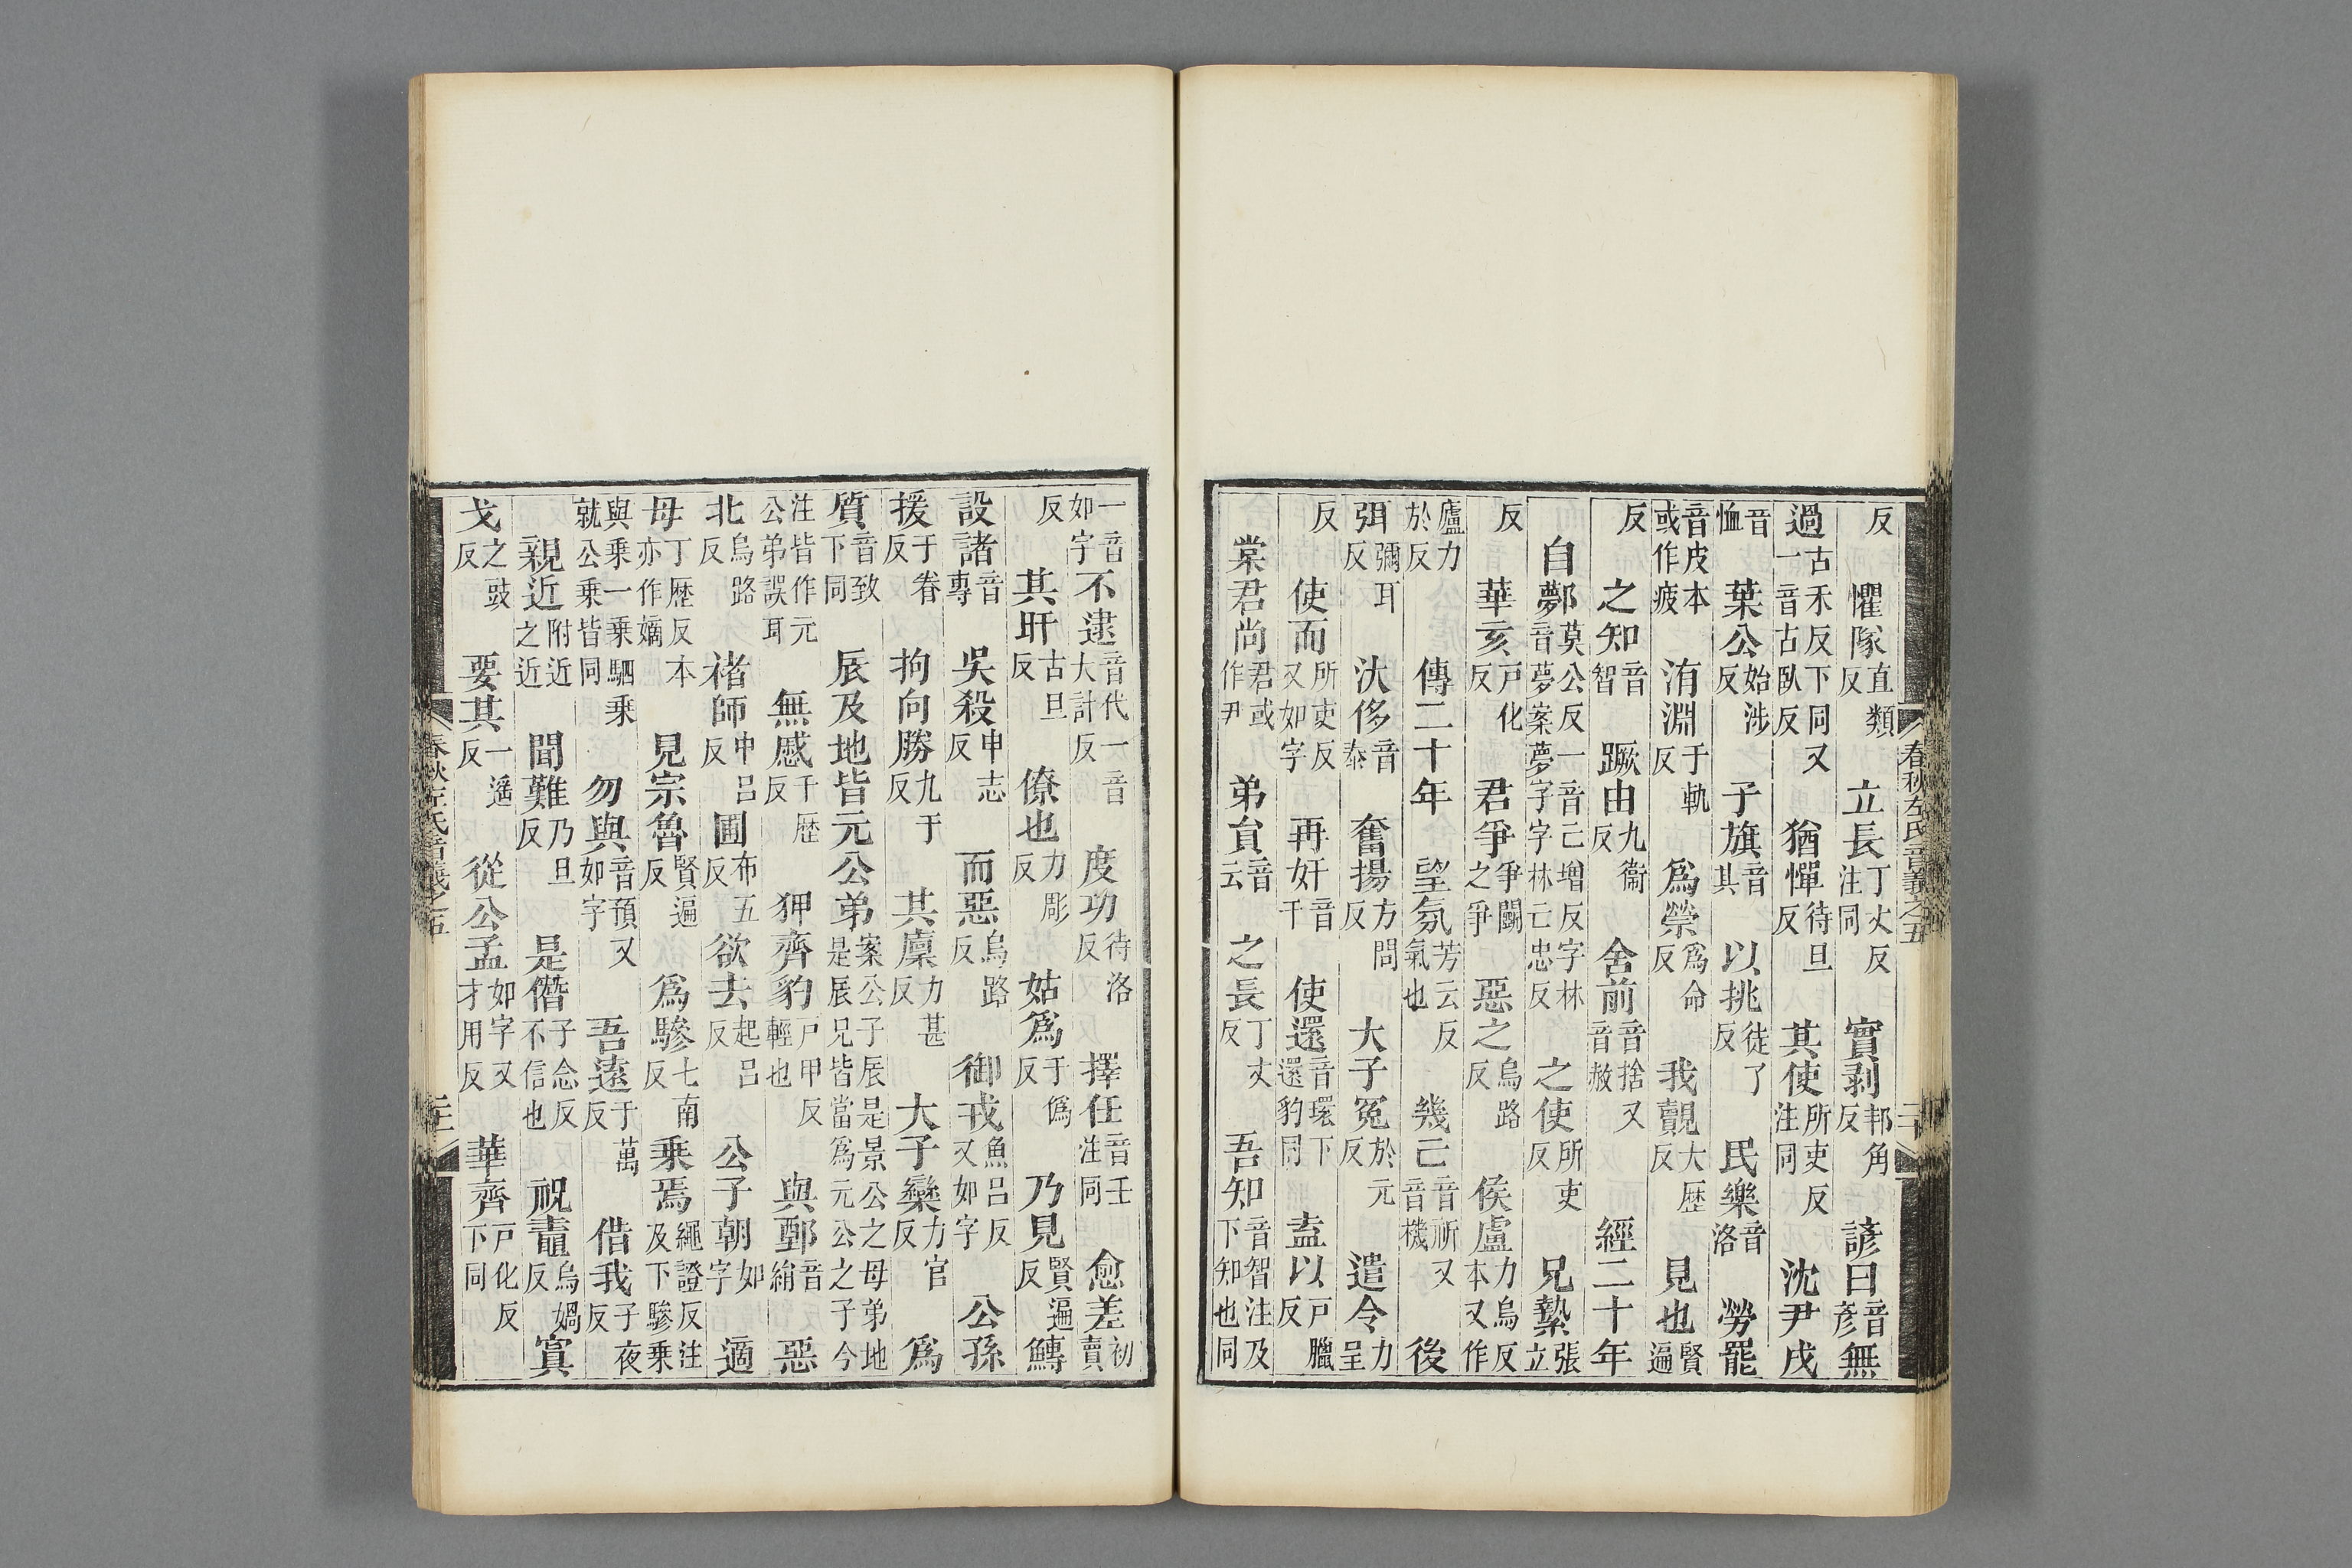 反　懼隊直類反　立長丁丈反注同　實剥邦角反　諺曰音彦　無
過古禾反下同又一音古臥反　猶憚待旦反　其使所吏反注同　沈尹戌
音恤　葉公始涉反　子旗音其　以挑徒了反　民樂音洛　勞罷
音皮本或作疲　洧淵于軌反　爲禜爲命反　我覿大歷反　見也賢遍
反　之知音智　蹶由九衞反　舍前音捨又音赦　經二十年
自鄸莫公反一音亡增反字林音夢案夢字字林亡忠反　之使所吏反　兄縶張立
反　華亥戸化反　君爭爭鬬之爭　惡之烏路反　侯盧力烏反本又作
廬力於反　傳二十年　望氛芳云反氣也　幾亡音祈又音機　後
弭彌耳反　汏侈音泰　奮揚方問反　大子冤於元反　遣令力呈
反　使而所吏反又如字　再奸音干　使還音環下還豹同　盍以戸臘反
棠君尚君或作尹　弟貟音云　之長丁丈反　吾知音智注及下知也同
春秋左氏音義之五　二十
一音如字　不逮音代一音大計反　度功待洛反　擇任音壬注同　愈差初賣
反　其肝古旦反　僚也力彫反　姑爲于僞反　乃見賢遍反　鱄
設諸音專　吳殺申志反　而惡烏路反　御戎魚呂反又如字　公孫
援于眷反　拘向勝九于反　其廩力甚反　大子欒力官反　爲
質音致下同　辰及地皆元公弟案公子辰是景公之母弟地是辰兄皆當爲元公之子今
注皆作元公弟誤耳　無慼千歷反　狎齊豹戸甲反輕也　與鄄音絹　惡
北烏路反　褚師中呂反　圃布五反　欲去起呂反　公子朝如字　適
母丁歷反本亦作嫡　見宗魯賢遍反　爲驂七南反　乗焉繩證反注及下驂乗
與乗一乗駟乗就公乗皆同　勿與音預又如字　吾遠于萬反　借我子夜反
親近附近之近　聞難乃旦反　是僭子念反不信也　祝鼃烏媧反　寘
戈之豉反　要其一遥反　從公孟如字又才用反　華齊戸化反下同
春秋左氏音義之五　二十一